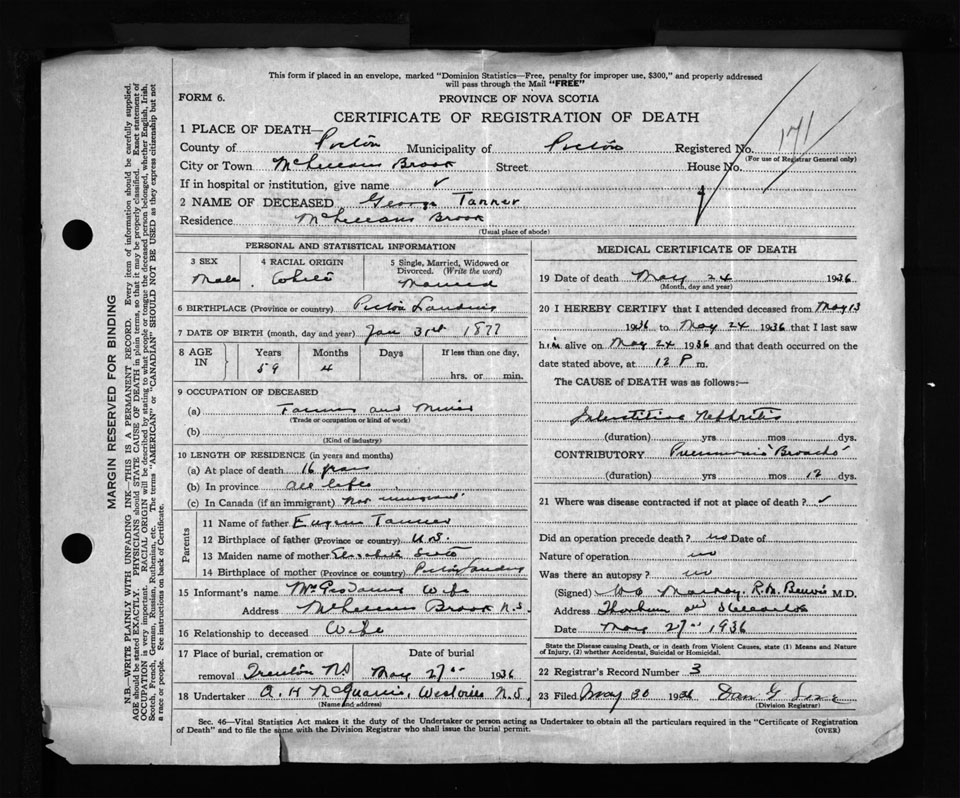 This form if placed in an envelope, marked "Dominion Statistics—Free, penalty for improper use, $300," and properly addressed
will pass through the Mail "FREE"
FORM 6.
PROVINCE OF NOVA SCOTIA
CERTIFICATE OF REGISTRATION OF DEATH
1 PLACE OF DEATH—
County of Pictou Municipality of Pictou Registered No. 171
(For use of Registrar General only)
City or Town McLellans Brook Street House No.
If in hospital or institution, give name ✓
2 NAME OF DECEASED George Tanner
Residence McLellans Brook
(Usual place of abode)
PERSONAL AND STATISTICAL INFORMATION
3 SEX 4 RACIAL ORIGIN 5 Single, Married, Widowed or
Divorced. (Write the word)
Male White Married
6 BIRTHPLACE (Province or country) Pictou Landing
7 DATE OF BIRTH (month, day and year) Jan 31st 1877
8 AGE IN Years Months Days If less than one day,
59 4 hrs. or min.
9 OCCUPATION OF DECEASED
(a) and Miner
(Trade or occupation or kind of work)
(b)
(Kind of industry)
10 LENGTH OF RESIDENCE (in years and months)
(a) At place of death 16 years
(b) In province all life
(c) In Canada (if an immigrant) Not immigrant
Parents
11 Name of father Eugene Tanner
12 Birthplace of father (Province or country) N.S.
13 Maiden name of mother Elizabeth
14 Birthplace of mother (Province or country) Pictou Landing
15 Informant's name Mrs Geo Tanner Wife
Address McLellans Brook N.S.
16 Relationship to deceased Wife
17 Place of burial, cremation or Date of burial
removal Trenton N.S. May 27th 1936
18 Undertaker Westville N.S.
(Name and address)
MEDICAL CERTIFICATE OF DEATH
19 Date of death May 24 1936
(Month, day and year)
20 I HEREBY CERTIFY that I attended deceased from May 13
1936 to May 24 1936 that I last saw
him alive on May 24 1936 and that death occurred on the
date stated above, at 12 P m.
The CAUSE OF DEATH was as follows:—
Interstitial Nephritis
(duration) yrs mos dys.
CONTRIBUTORY Pneumonia Broncho
(duration) yrs mos 12 dys.
21 Where was disease contracted if not at place of death? ✓
Did an operation precede death? no Date of
Nature of operation no
Was there an autopsy? no
(Signed) Murray. M.D.
Address Thorburn and
Date May 27th 1936
State the Disease causing Death, or in death from Violent Causes, state (1) Means and Nature
of Injury, (2) whether Accidental, Suicidal or Homicidal.
22 Registrar's Record Number 3
23 Filed May 30 1936 Dan G
(Division Registrar)
Sec. 46—Vital Statistics Act makes it the duty of the Undertaker or person acting as Undertaker to obtain all the particulars required in the "Certificate of Registration
of Death" and to file the same with the Division Registrar who shall issue the burial permit.
(OVER)
MARGIN RESERVED FOR BINDING
N.B.—WRITE PLAINLY WITH UNFADING INK—THIS IS A PERMANENT RECORD. Every item of information should be carefully supplied.
AGE should be stated EXACTLY. PHYSICIANS should STATE CAUSE OF DEATH in plain terms, so that it may be properly classified. Exact statement of
OCCUPATION is very important. RACIAL ORIGIN will be described by stating to what people or tongue the deceased person belonged, whether English, Irish,
Scotch, French, German, Russian, Ruthenian, etc. The terms "AMERICAN" or "CANADIAN" SHOULD NOT BE USED as they express citizenship but not
a race or people. See instructions on back of Certificate.